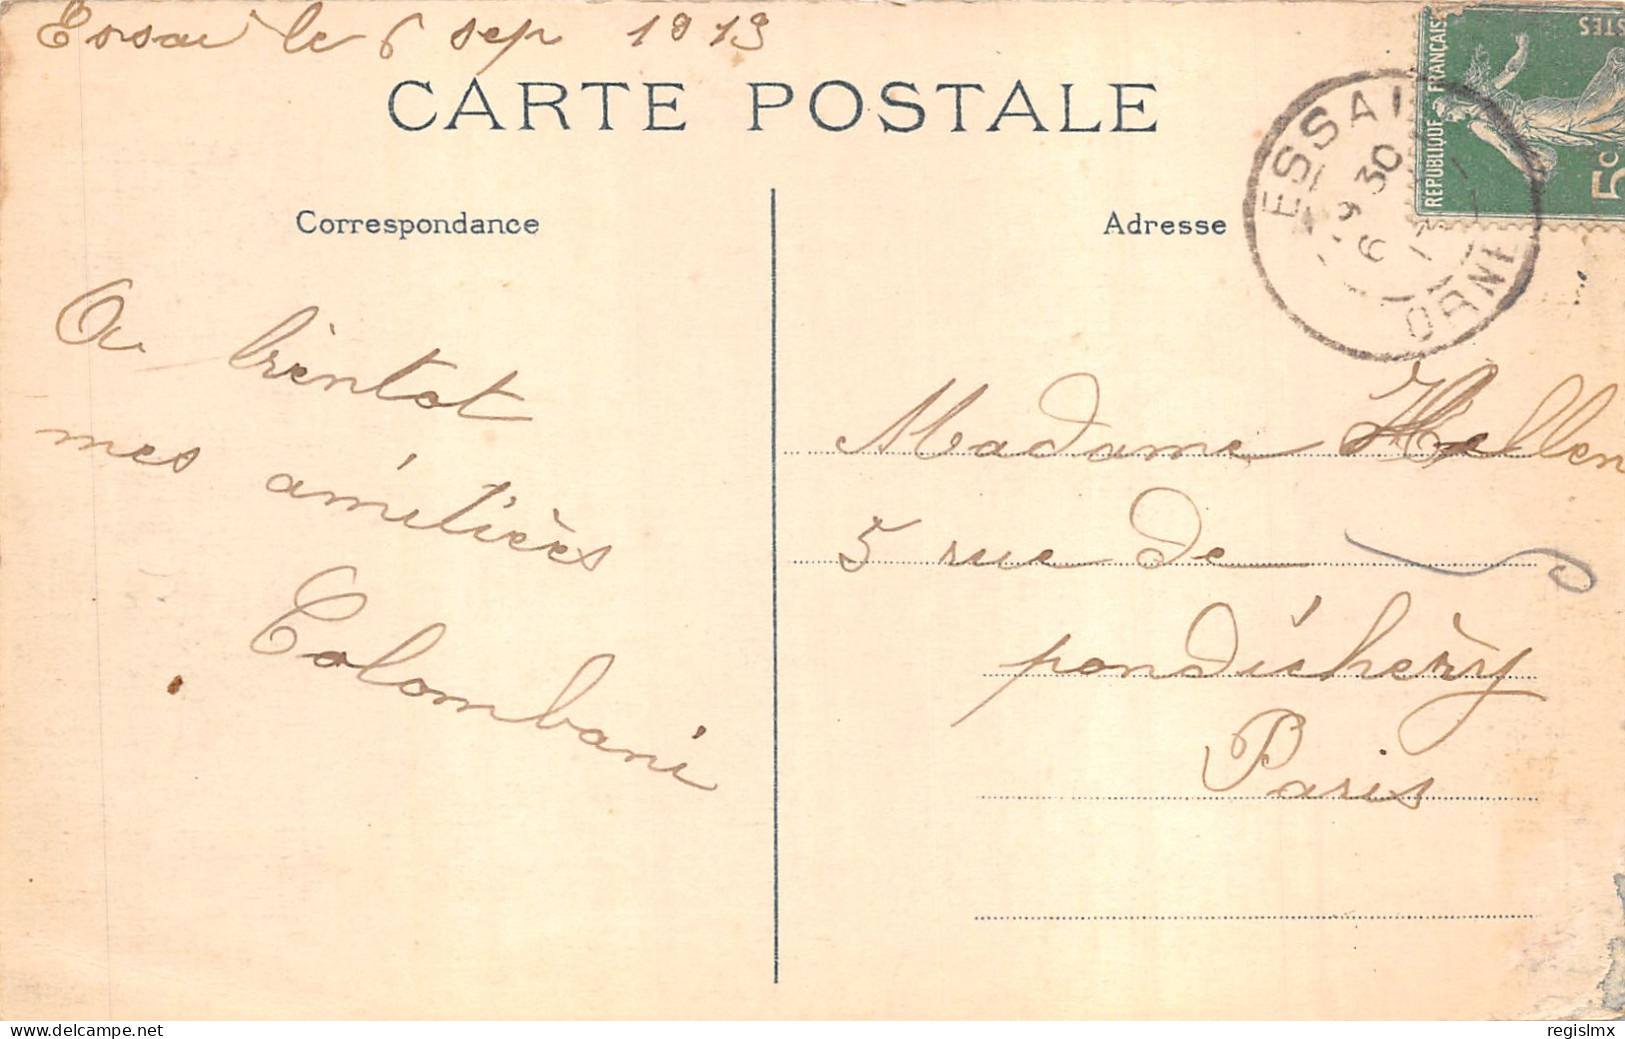 Essai le 6 sep 1913
CARTE POSTALE
Correspondance
Adresse
ESSAI
9 30
6
ORNE
REPUBLIQUE FRANÇAISE
POSTES
5c
A bientot
mes amitiées
Colombani
Madame Hellen
5 rue de
pondichéry
Paris
delcampe.net
regislmx